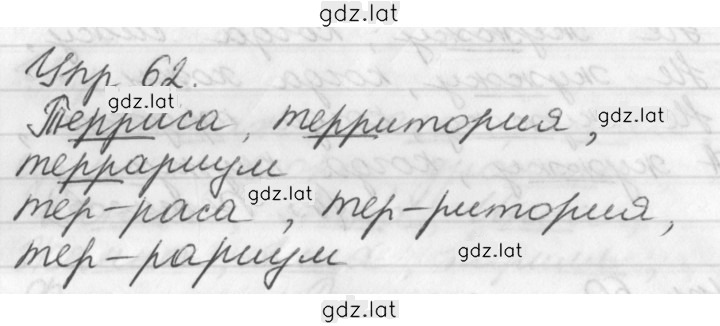 gdz.lat
Упр 62.
gdz.lat
Терриса, территория, gdz.lat
террариум
gdz.lat
тер-раса, тер-ритория,
тер-рариум gdz.lat
gdz.lat